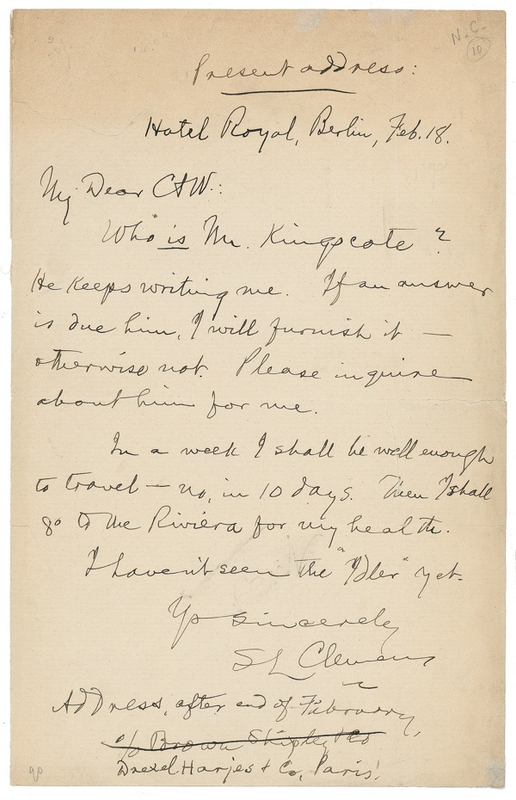 N.C.
10
Present address:
Hotel Royal, Berlin, Feb. 18.
My Dear C & W.:
Who is Mr. Kingscote?
He keeps writing me. If an answer
is due him, I will furnish it —
otherwise not. Please inquire
about him for me.
In a week I shall be well enough
to travel — no, in 10 days. Then I shall
go to the Riviera for my health.
I haven't seen the "Idler" yet.
Ys sincerely
SL Clemens
Address, after end of February,
c/o Brown Shipley & Co
Drexel Harjes & Co, Paris.